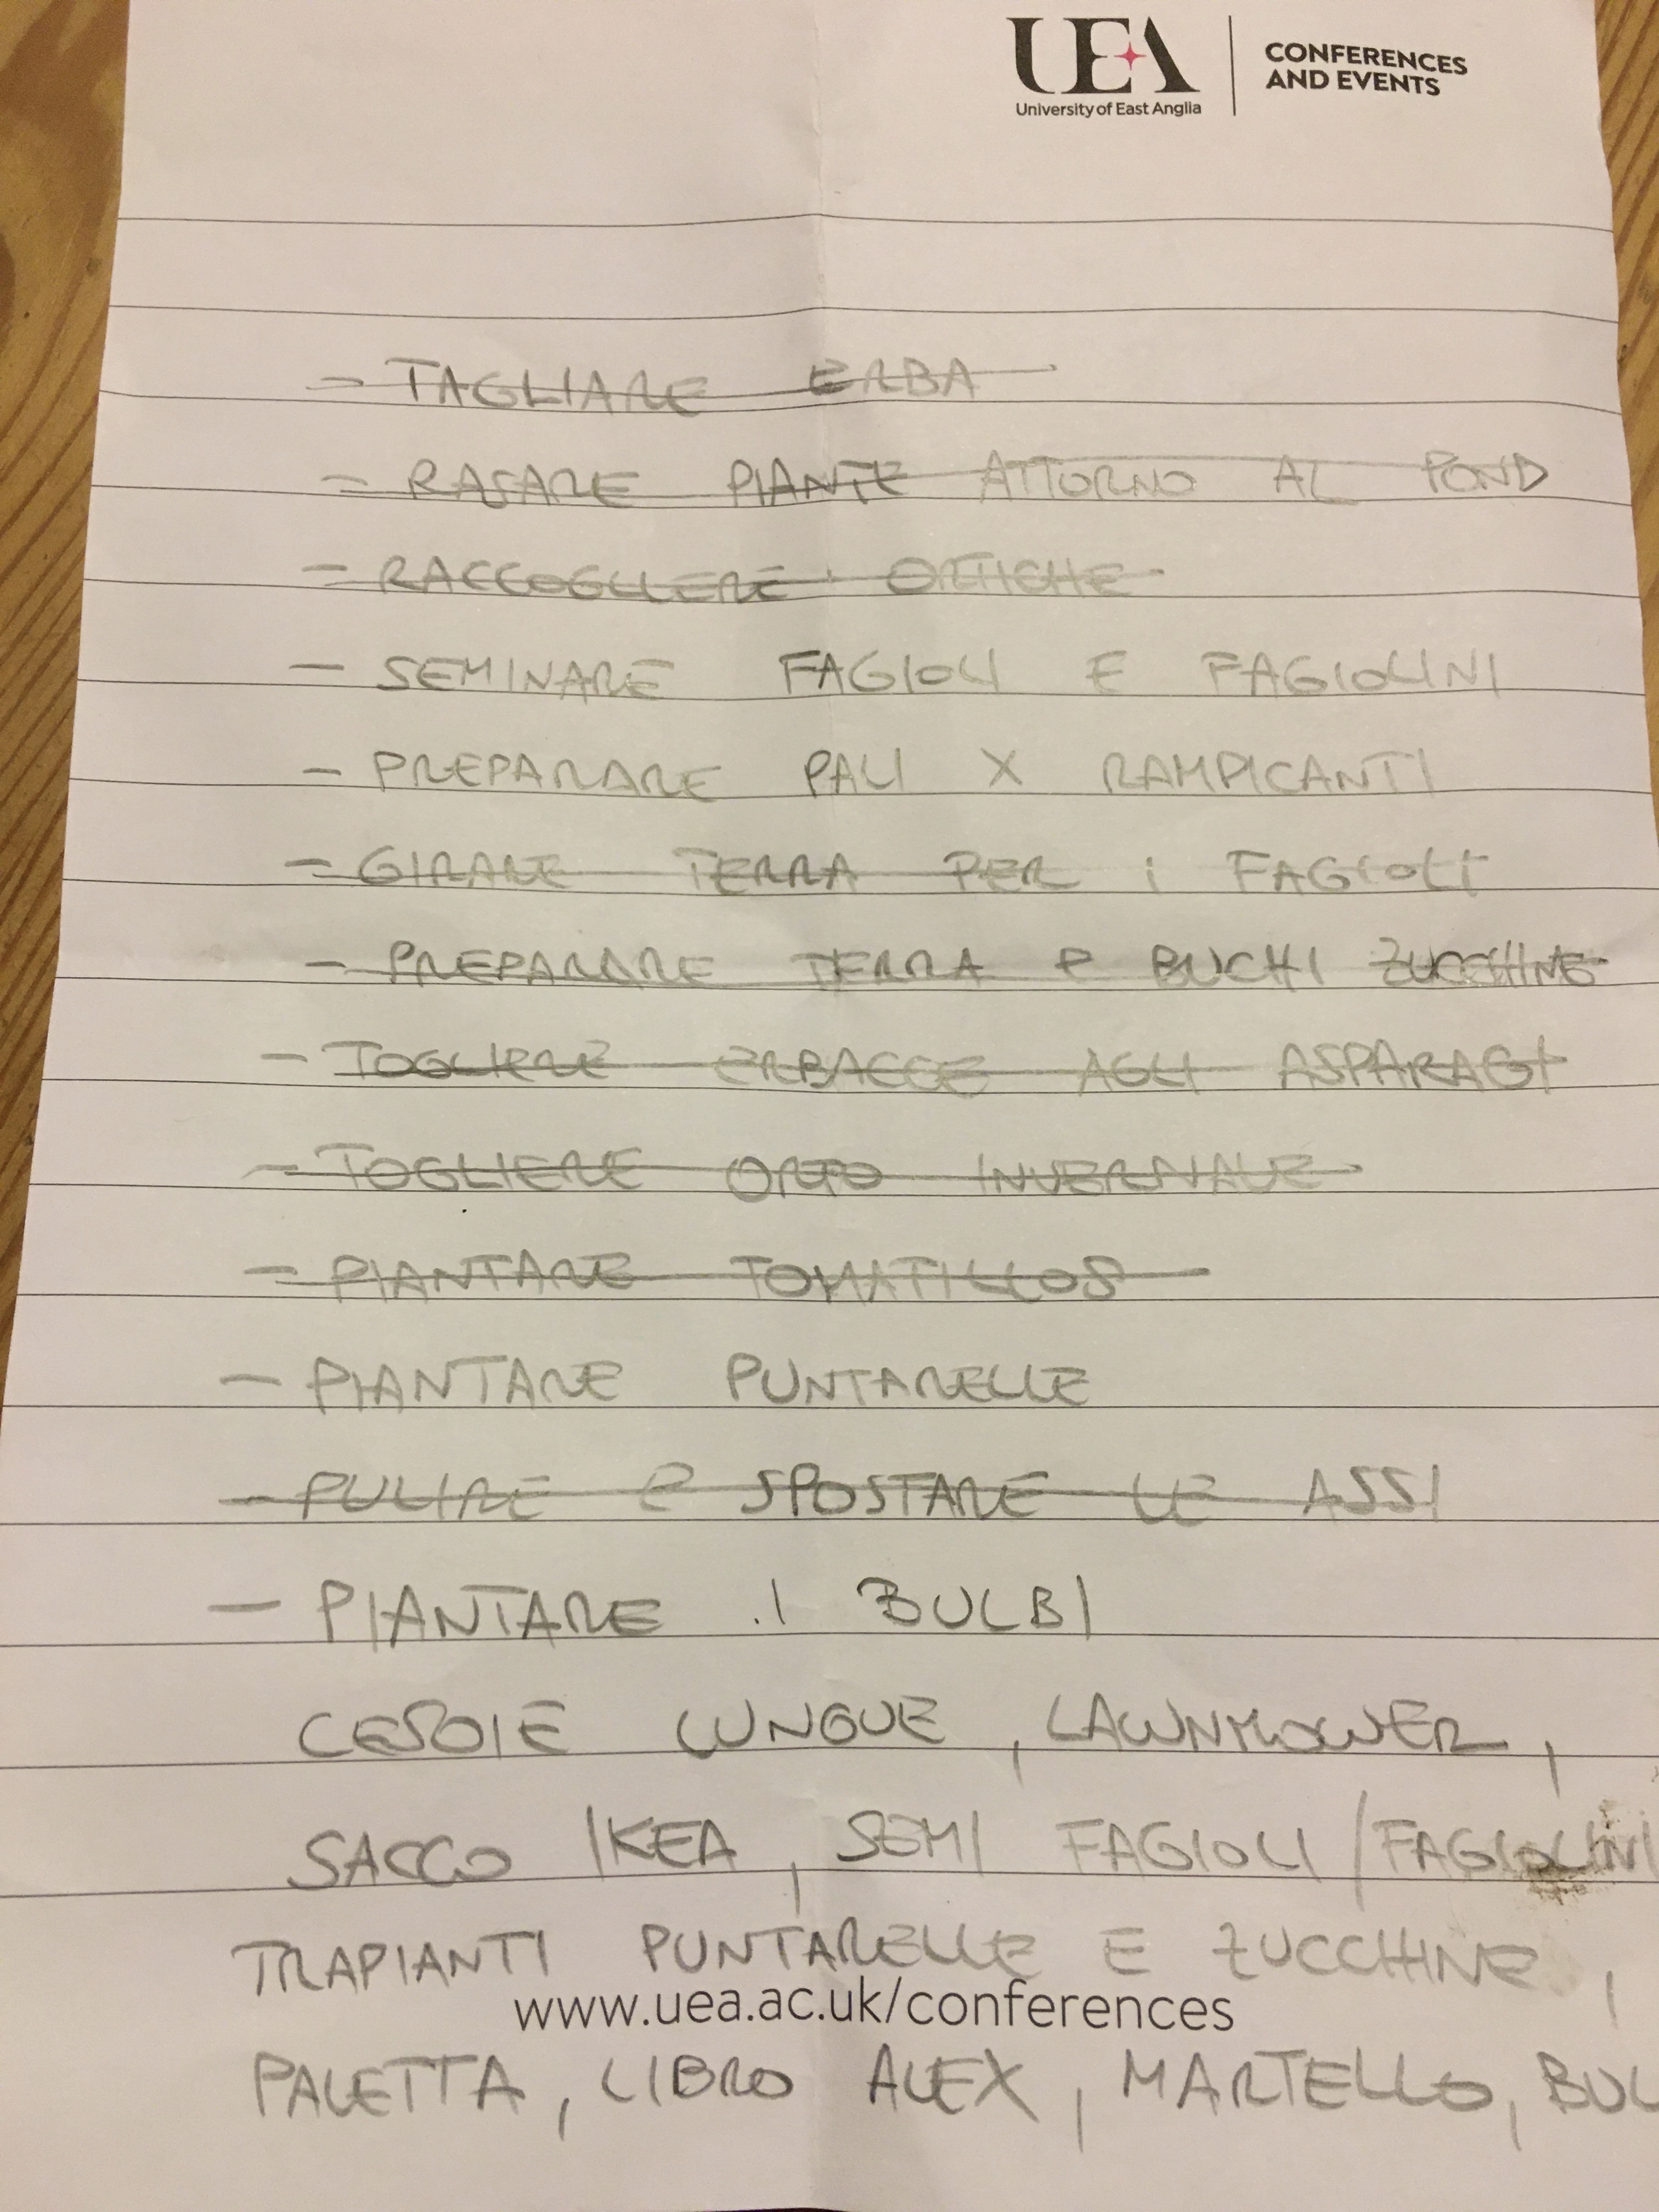 UEA
University of East Anglia
CONFERENCES
AND EVENTS
- TAGLIARE ERBA
- RASARE PIANTE ATTORNO AL POND
- RACCOGLIERE ORTICHE
- SEMINARE FAGIOLI E FAGIOLINI
- PREPARARE PALI X RAMPICANTI
- GIRARE TERRA PER i FAGIOLI
- PREPARARE TERRA E BUCHI ZUCCHINE
- TOGLIERE ERBACCE AGLI ASPARAGI
- TOGLIERE ORTO INVERNALE
- PIANTARE TOMATILLOS
- PIANTARE PUNTARELLE
- PULIRE E SPOSTARE LE ASSI
- PIANTARE I BULBI
CESOIE LUNGUE, LAWNMOWER,
SACCO IKEA, SEMI FAGIOLI/FAGIOLINI
TRAPIANTI PUNTARELLE E ZUCCHINE,
www.uea.ac.uk/conferences
PALETTA, LIBRO ALEX, MARTELLO, BUL